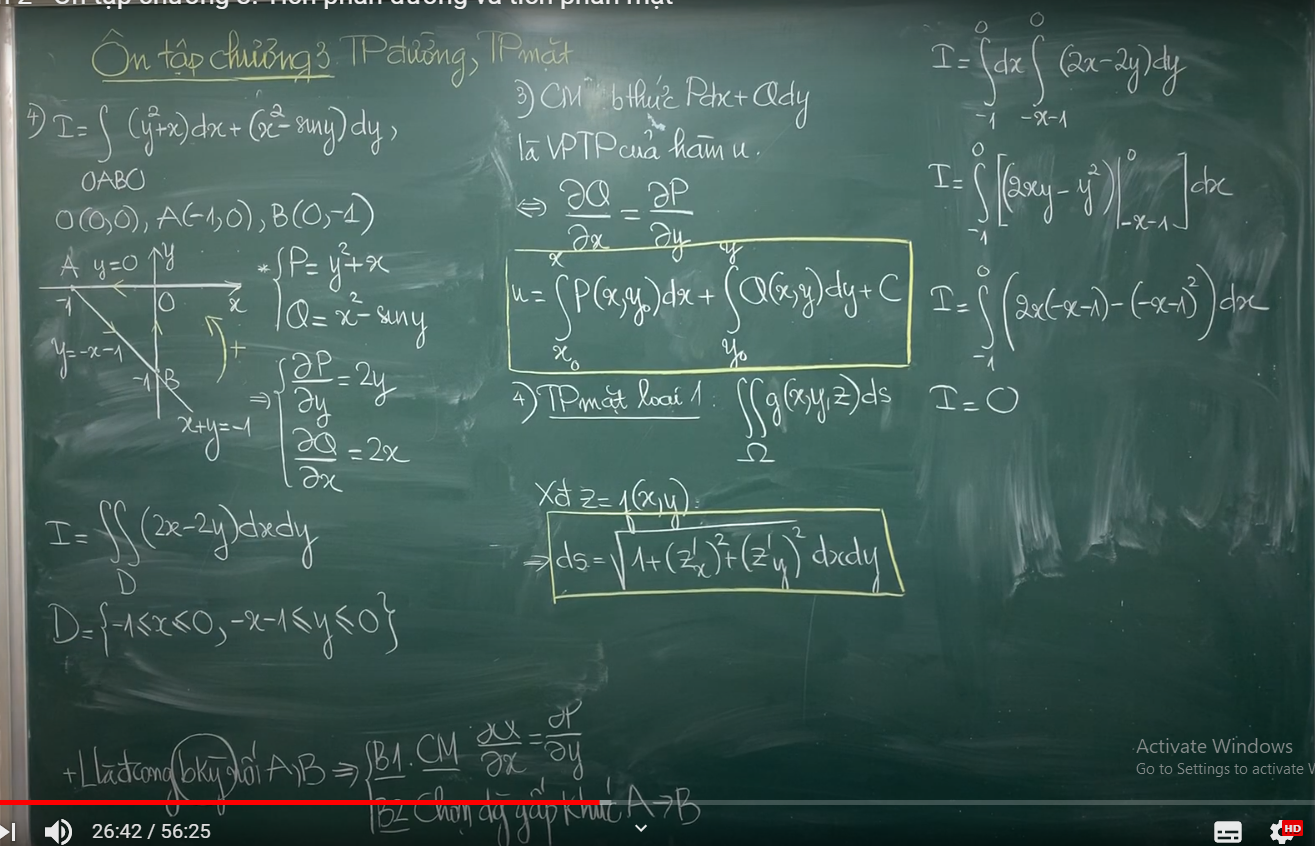 Ôn tập chương 3. TP đường, TP mặt
4) I = ∫ (y²+x)dx + (x² - siny)dy,
OABO
O(0,0), A(-1,0), B(0,-1)
A y=0 y
-1 O x
y=-x-1
-1 B
x+y=-1
+
* { P = y²+x
Q = x² - siny
⇒ { ∂P/∂y = 2y
∂Q/∂x = 2x
I = ∬_D (2x-2y)dxdy
D = {-1≤x≤0, -x-1≤y≤0}
+ L là đ cong bkỳ nối A, B ⇒ { B1. CM ∂Q/∂x = ∂P/∂y
B2 Chọn đg gấp khúc A→B
3) CM bthức Pdx + Qdy
là VPTP của hàm u.
⇔ ∂Q/∂x = ∂P/∂y
u = ∫_{x₀}^{x} P(x,y₀)dx + ∫_{y₀}^{y} Q(x,y)dy + C
4) TP mặt loại 1: ∬_Ω g(x,y,z)ds
Xđ z = f(x,y):
⇒ ds = √(1+(z'x)²+(z'y)²) dxdy
I = ∫_{-1}^{0} dx ∫_{-x-1}^{0} (2x-2y)dy
I = ∫_{-1}^{0} [(2xy - y²)|_{-x-1}^{0}] dx
I = ∫_{-1}^{0} (2x(-x-1) - (-x-1)²) dx
I = 0
Activate Windows
Go to Settings to activate W
26:42 / 56:25
HD